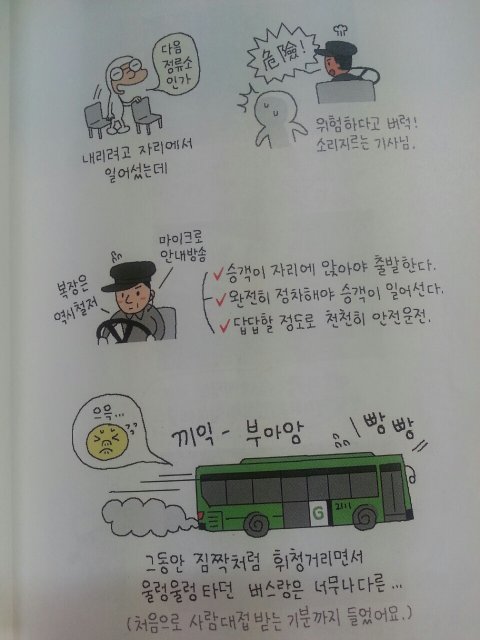 다음
정류소
인가
내리려고 자리에서
일어섰는데
危險!
위험하다고 버럭!
소리지르는 기사님.
복장은
역시철저
마이크로
안내방송
승객이 자리에 앉아야 출발한다.
완전히 정차해야 승객이 일어선다.
답답할 정도로 천천히 안전운전.
으윽...
끼익 - 부아앙
빵빵
G
2111
그동안 짐짝처럼 휘청거리면서
울렁울렁 타던 버스랑은 너무나 다른...
(처음으로 사람대접 받는 기분까지 들었어요.)